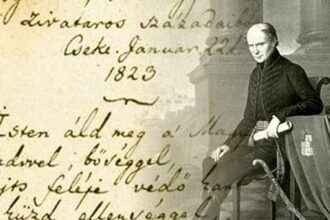 Zivataros századaibó
Cseke. Januar. 22d.
1823
Isten áld meg a' Ma
edvvel, bőséggel,
jts feléje védő kar
küzd ellenséggel